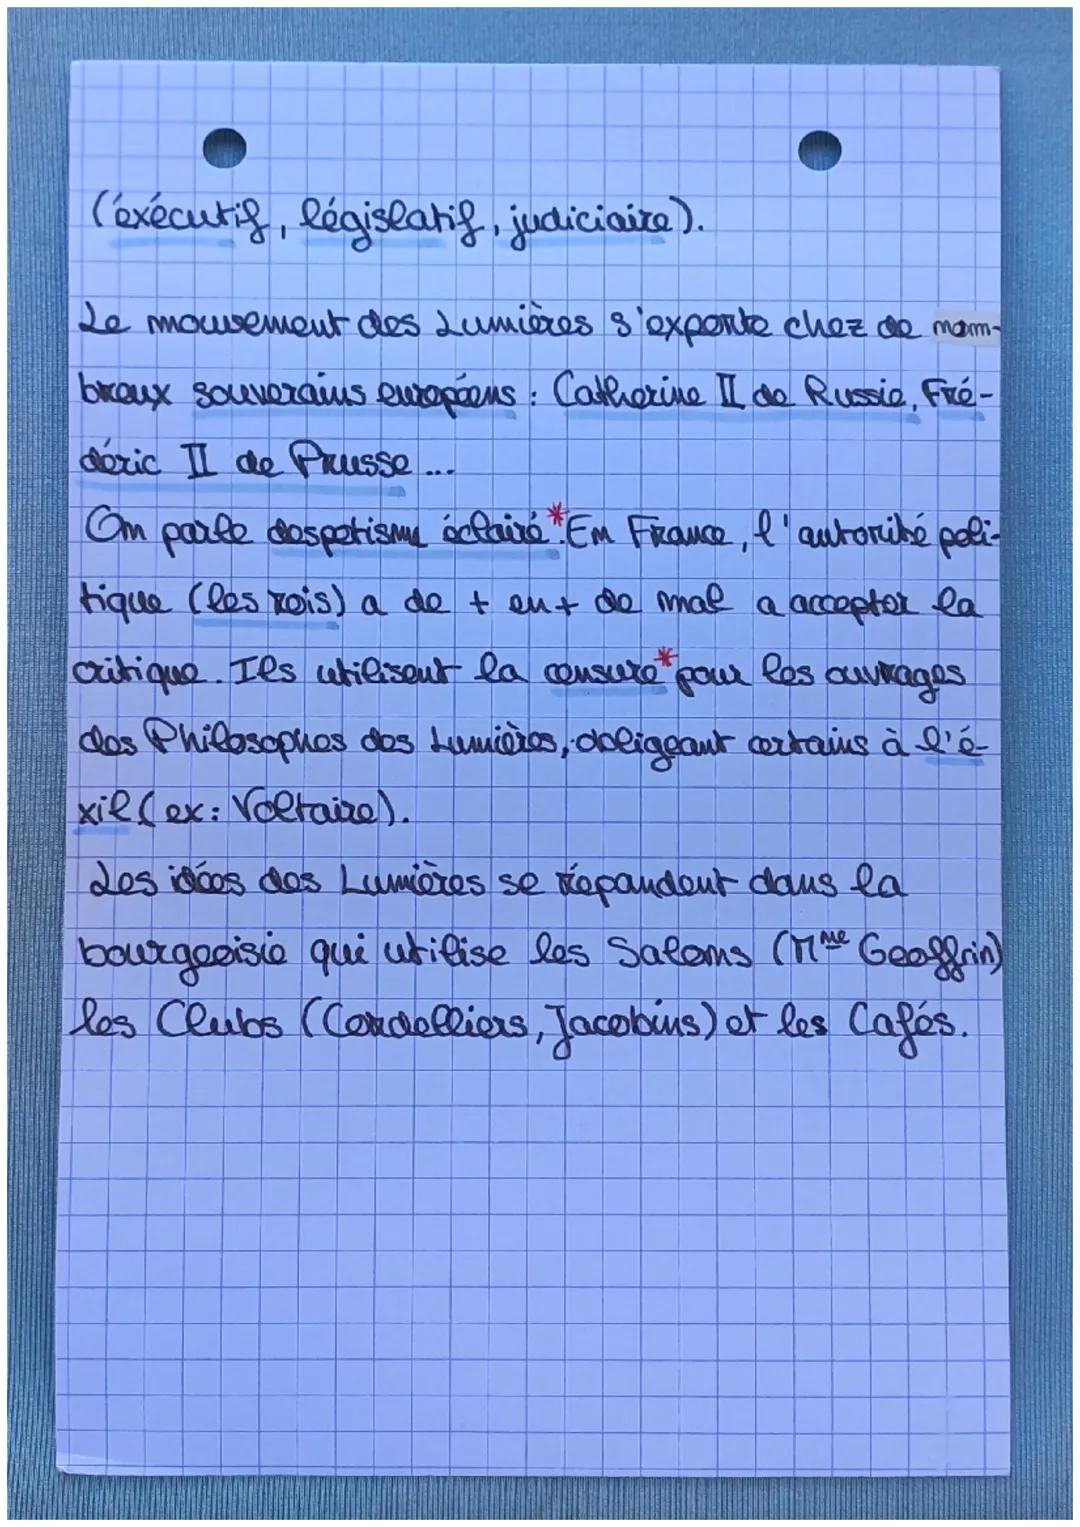 (éxécutif, législatif, judiciaire).
Le mouvement des Lumières s'exporte chez de nom-
breux souverains européens : Catherine II de Russie, Fré-
déric II de Prusse ...
On parle despotisme éclairé*. En France, l'autorité poli-
tique (les rois) a de + en + de mal a accepter la
critique. Ils utilisent la censure* pour les ouvrages
des Philosophes des Lumières, obligeant certains à l'é-
xil (ex: Voltaire).
Les idées des Lumières se répandent dans la
bourgeoisie qui utilise les Salons (Mme Geoffrin)
les Clubs (Cordelliers, Jacobins) et les Cafés.